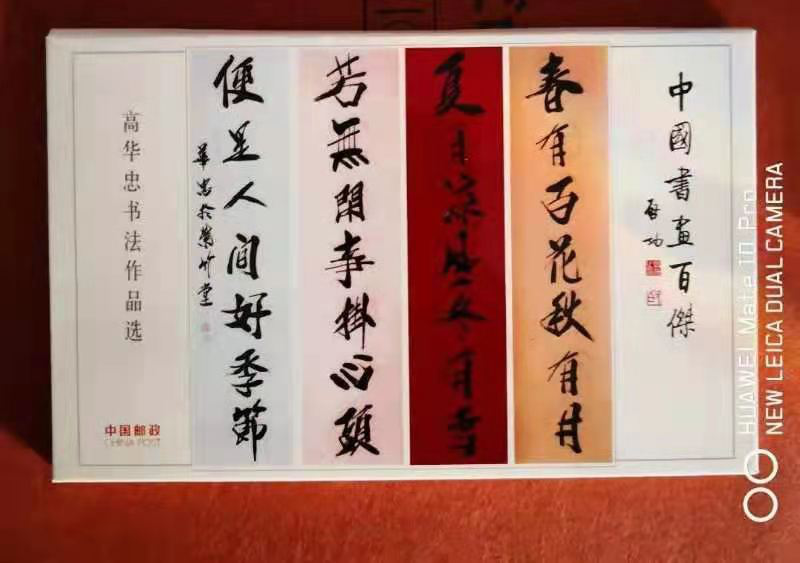 中國書畫百傑
启功
春有百花秋有月
夏有涼風冬有雪
若無閑事掛心頭
便是人間好季節
華忠於竹堂
高华忠书法作品选
中国邮政
CHINA POST
HUAWEI Mate 10 Pro
NEW LEICA DUAL CAMERA